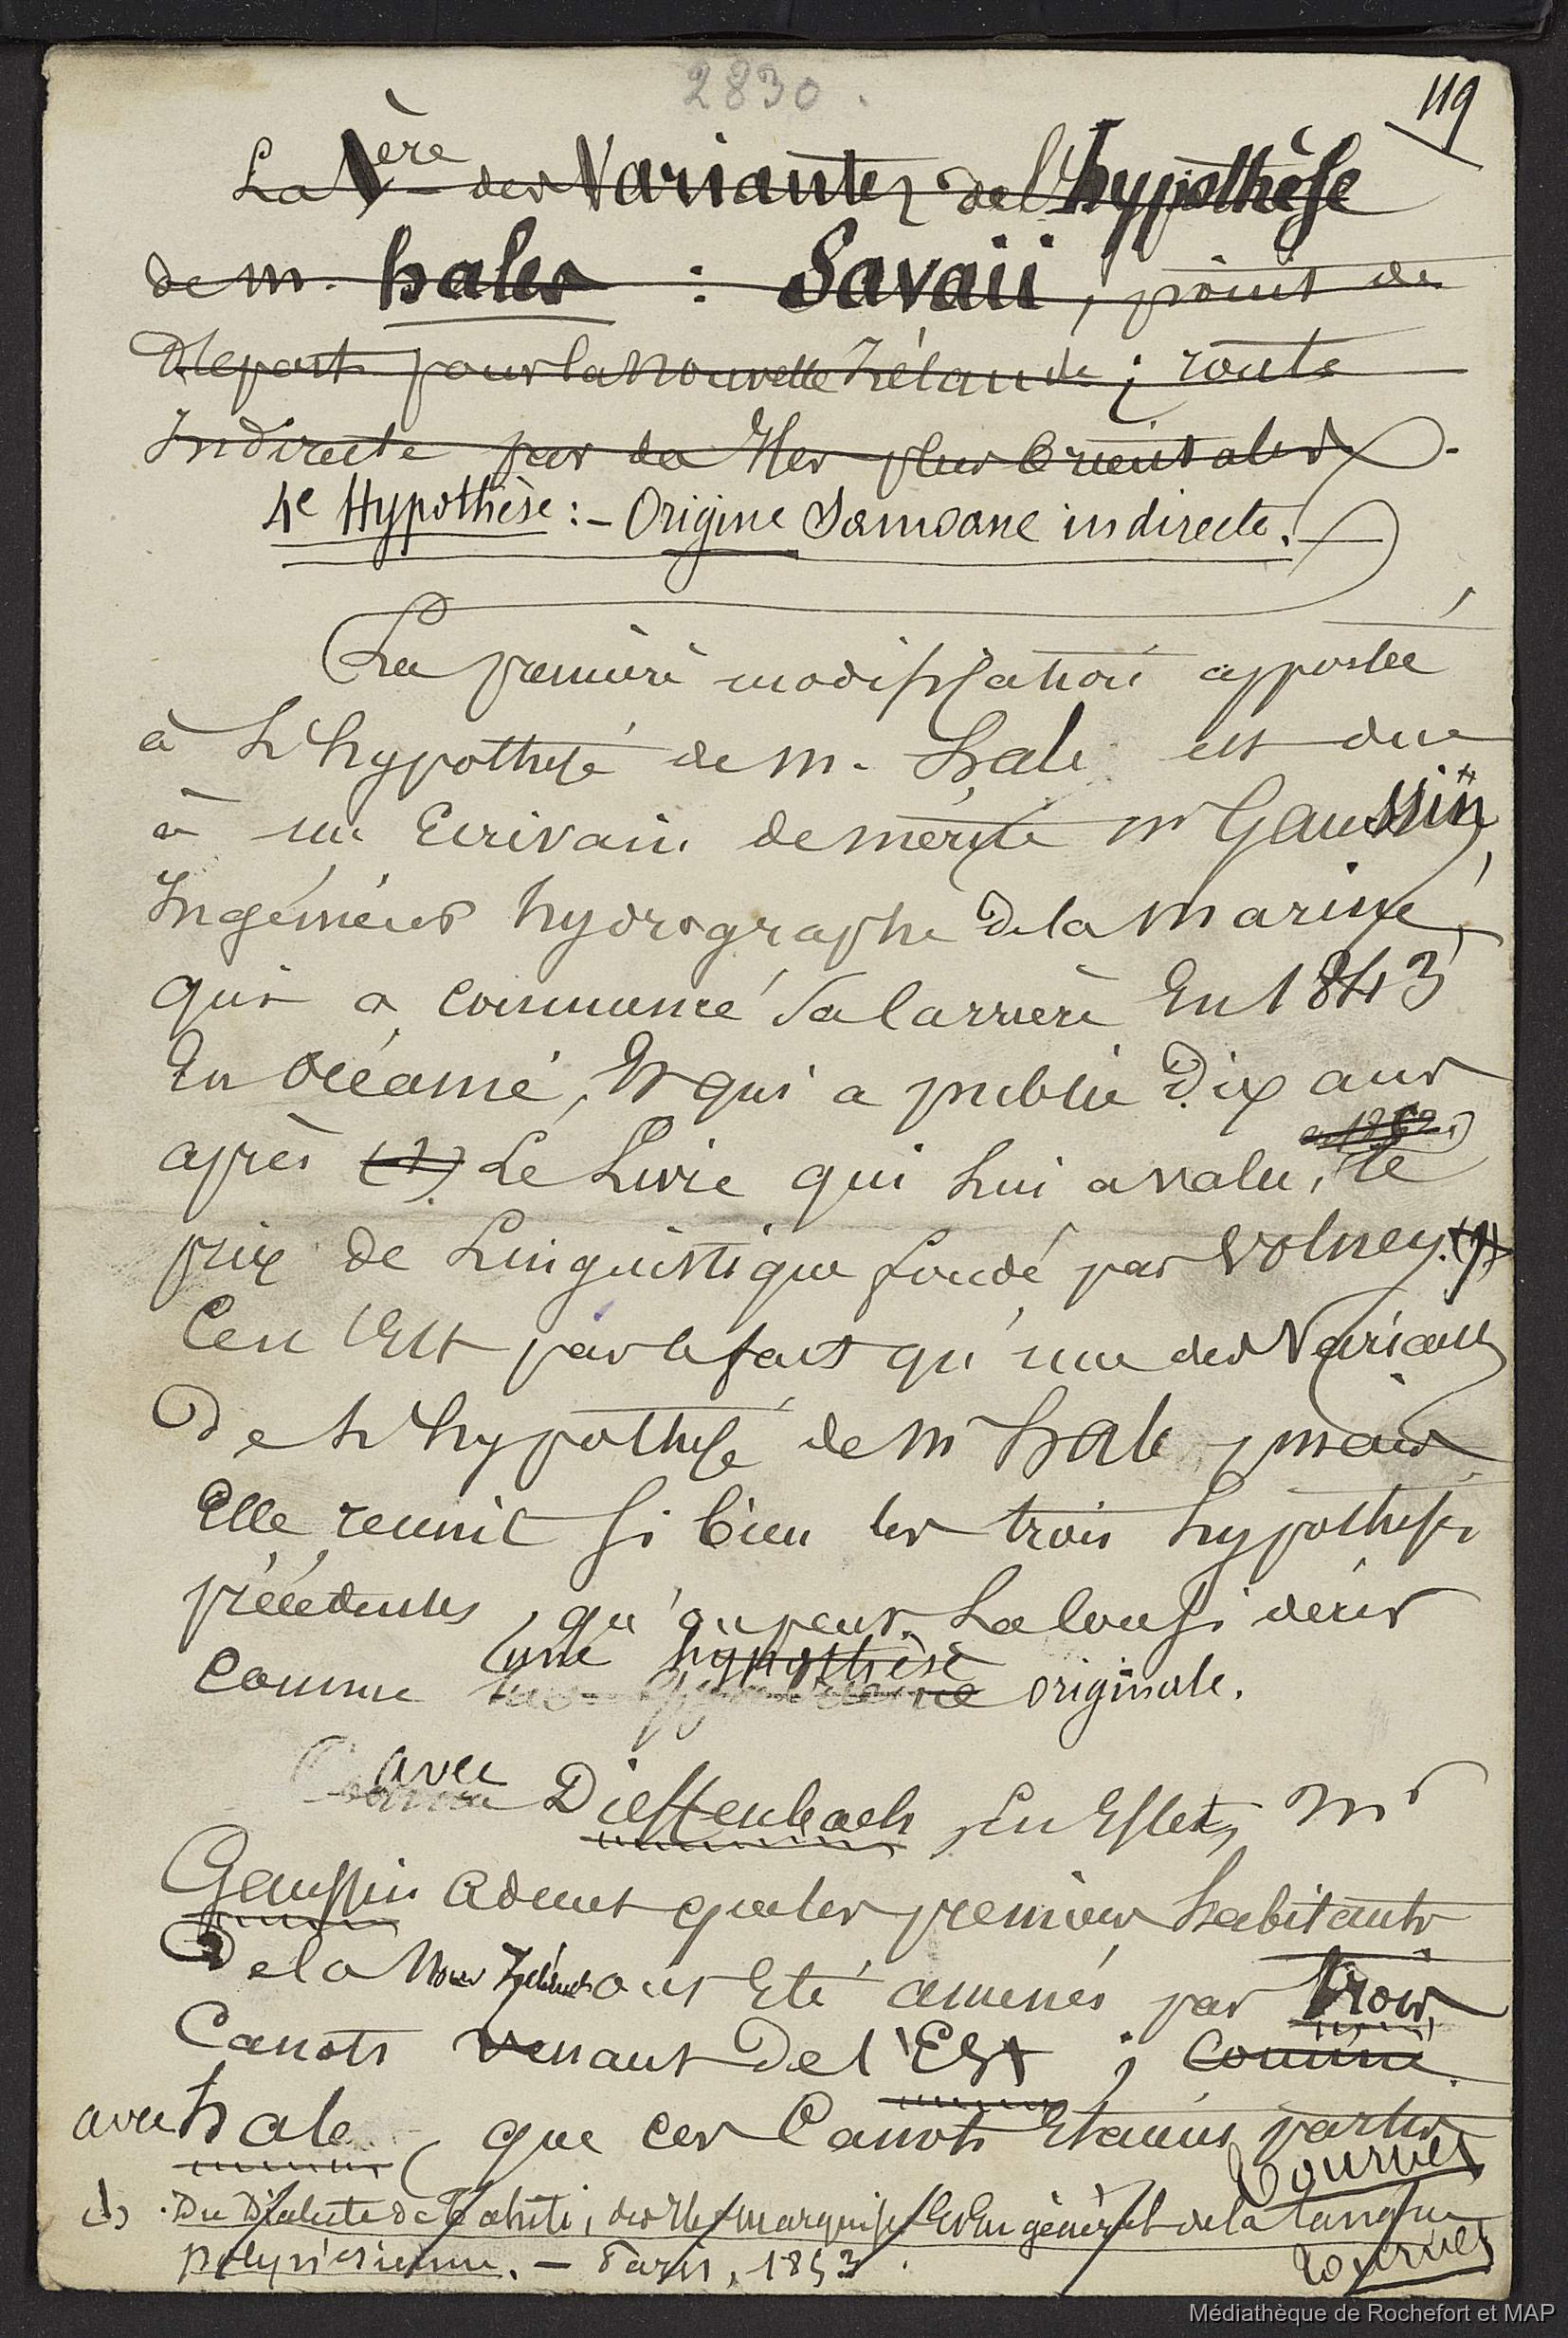 2830.
119
La 1ère des Variantes de l'hypothèse
de m. hales : Savaii, point de
Départ pour la Nouvelle Zélande ; route
Indirecte par des Iles plus Orientales.
4e Hypothèse : – Origine Samoane indirecte.
La première modification apportée
à L'hypothèse de m. hale est due
à un Ecrivain de mérite mr Gaussin,
Ingénieur hydrographe de la marine,
qui a commencé Sa Carrière En 1843
En Océanie, Et qui a publié Dix ans
après (1) Le Livre qui Lui a valu, le
prix de Linguistique fondé par Volney. (1)
Ce n'Est par le fait qu'une des Variantes
De L'hypothèse de mr hale, mais
Elle réunit Si bien les trois hypothèses
précédentes, qu'on peut La Considérer
Comme une hypothèse originale.
avec Dieffenbach, En Effet, Mr
Gaussin admet que les premiers habitants
De la Nouv Zélande ont Eté amenés par trois
Canots venant De l'Est ; Comme
avec hale, que ces Canots Etaient partis
tournez
(1) Du Dialecte de Tahiti, des Iles Marquises Et En général de la Langue
polynésienne. – Paris, 1853.
tournez
Médiathèque de Rochefort et MAP